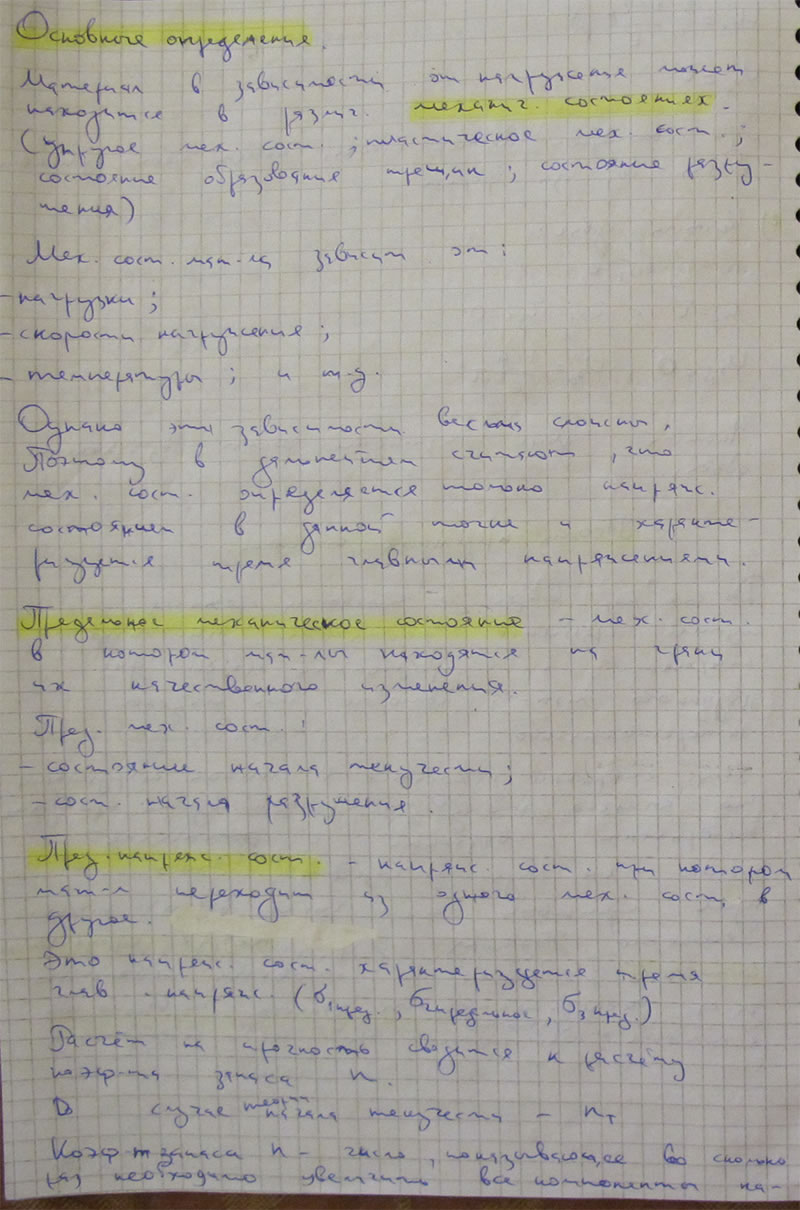 Основные определения.
Материал в зависимости от нагружения может
находится в различ. механич. состояниях.
(упругое мех. сост. ; пластическое мех. сост. ;
состояние образования трещин ; состояние разру-
шения)
Мех. сост. мат-ла зависит от :
- нагрузки ;
- скорости нагружения ;
- температуры ; и т.д.
Однако эти зависимости весьма сложны,
Поэтому в дальнейшем считают , что
мех. сост. определяется только напряж.
состоянием в данной точке и характе-
ризуется тремя главными напряжениями.
Предельное механическое состояние - мех. сост.
в котором мат-лы находятся на грани
их качественного изменения.
Пред. мех. сост. :
- состояние начала текучести ;
- сост. начала разрушения .
Пред. напряж. сост. - напряж. сост. при котором
мат-л переходит из одного мех. сост. в
другое.
Это напряж. сост. характеризуется тремя
глав . напряж. (σ1 пред. , σ2 предельное , σ3 пред.)
Расчёт на прочность сводится к расчёту
коэф-та запаса n.
В случае теории начала текучести - nт
Коэф-т запаса n - число , показывающее во сколько
раз необходимо увеличить все компоненты на-